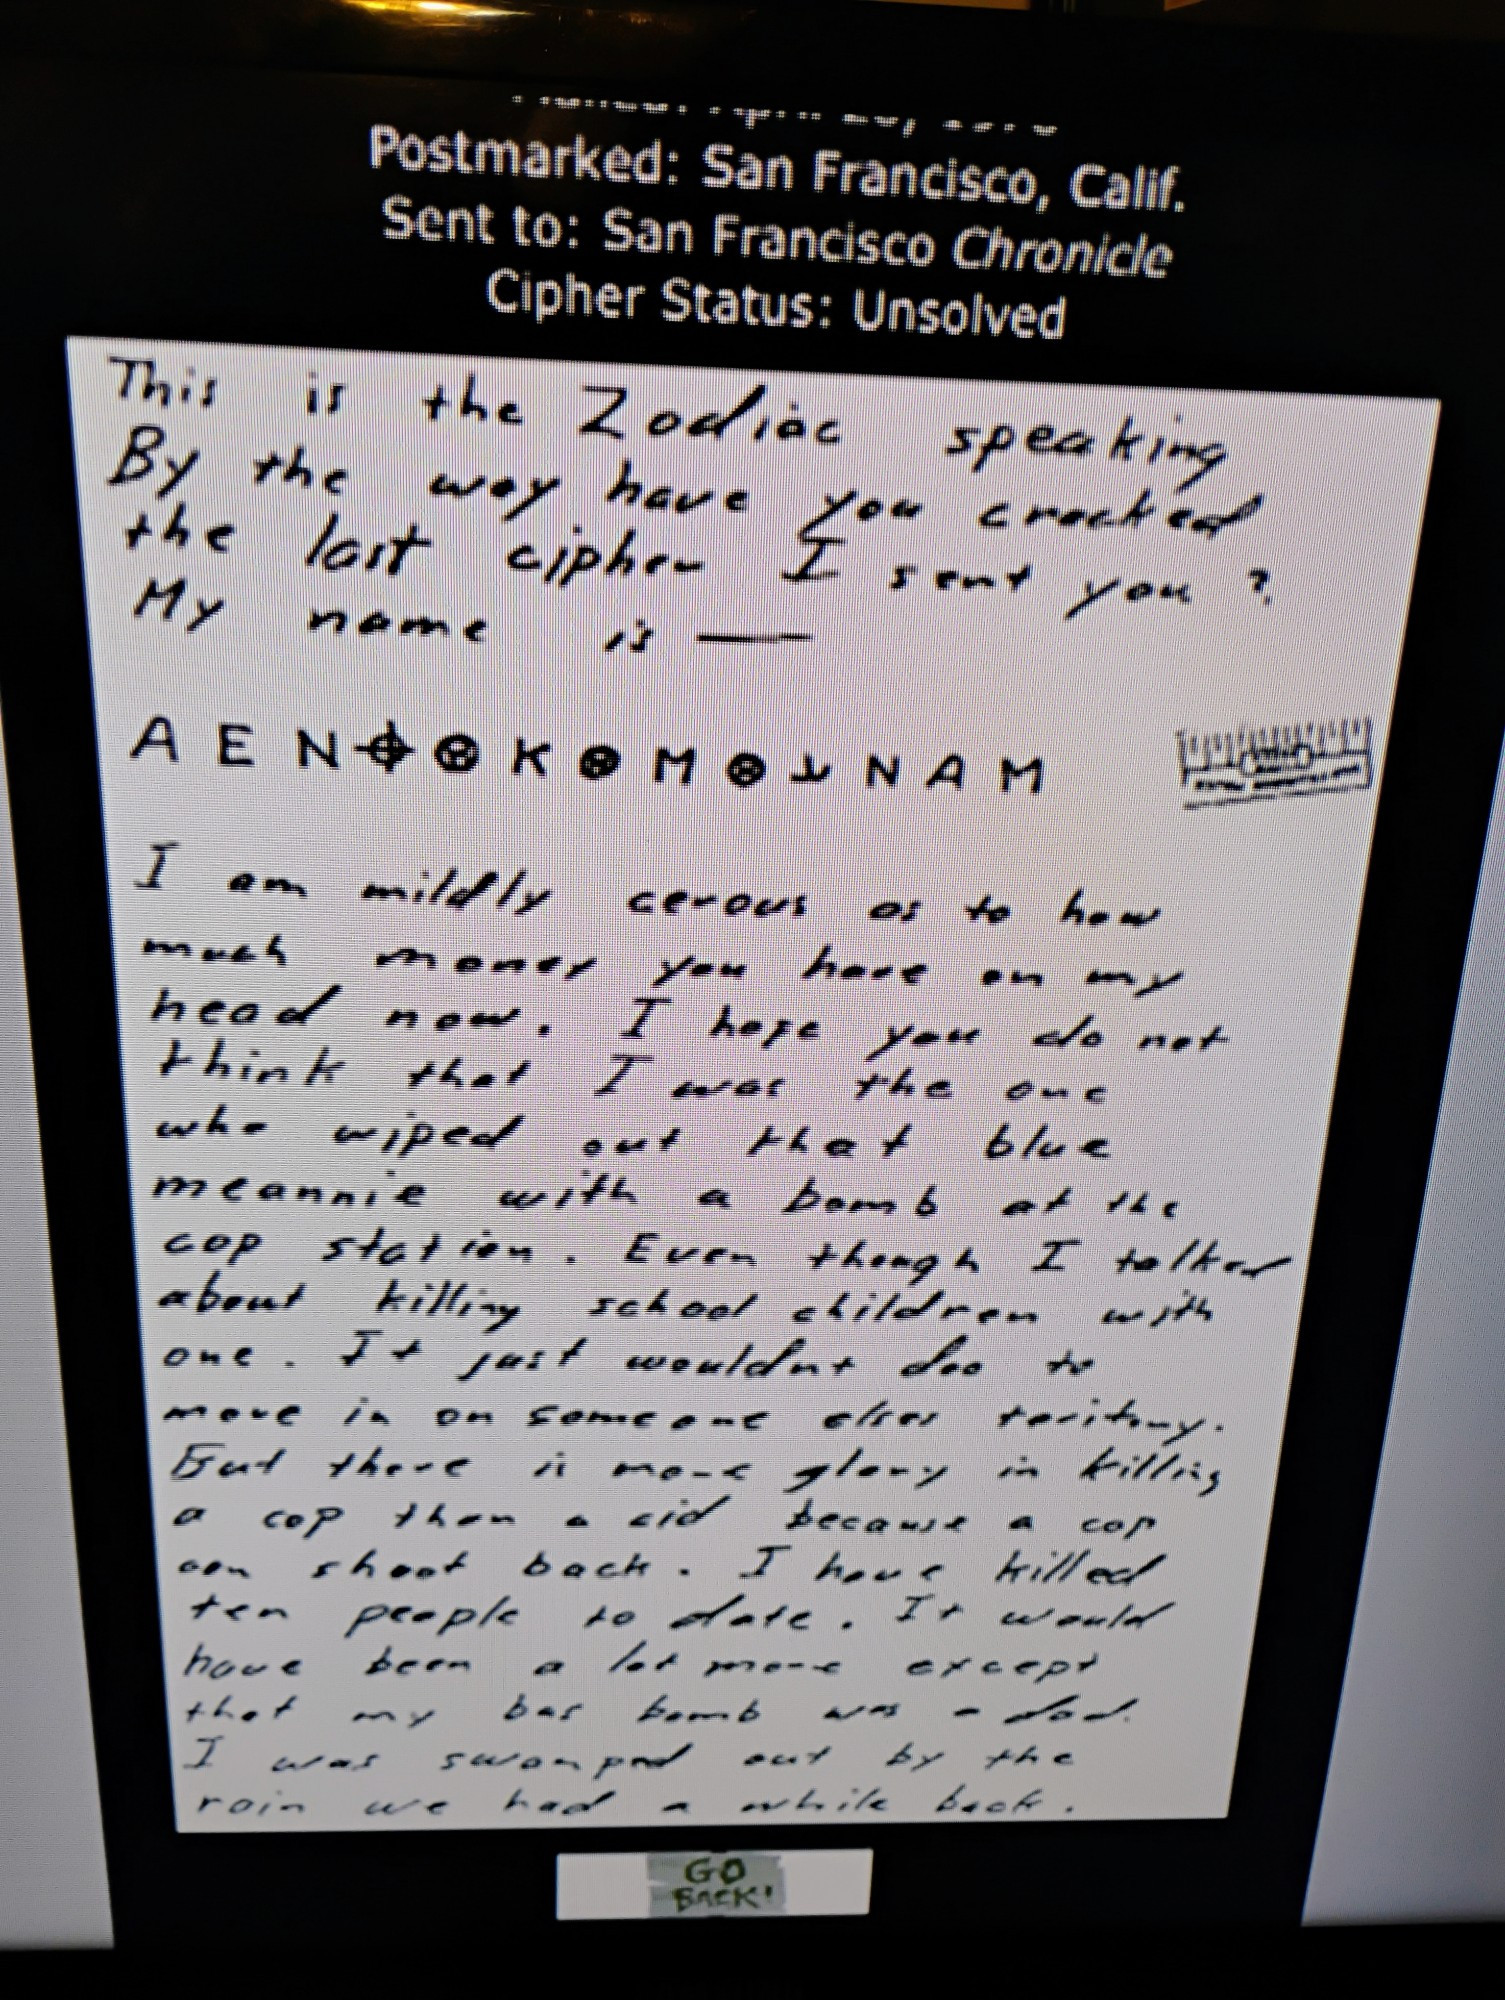 Postmarked: San Francisco, Calif.
Sent to: San Francisco Chronicle
Cipher Status: Unsolved
This is the Zodiac speaking
By the way have you cracked
the last cipher I sent you ?
My name is —
A E N ⌖ ⊗ K ⊗ M ⊗ ⅄ N A M
I am mildly cerous as to how
much money you have on my
head now. I hope you do not
think that I was the one
who wiped out that blue
meannie with a bomb at the
cop station. Even though I talked
about killing school children with
one. It just wouldnt doo to
move in on someone elses teritory.
But there is more glory in killing
a cop than a cid because a cop
can shoot back. I have killed
ten people to date. It would
have been a lot more except
that my bus bomb was a dud.
I was swamped out by the
rain we had a while back.
GO
BACK!